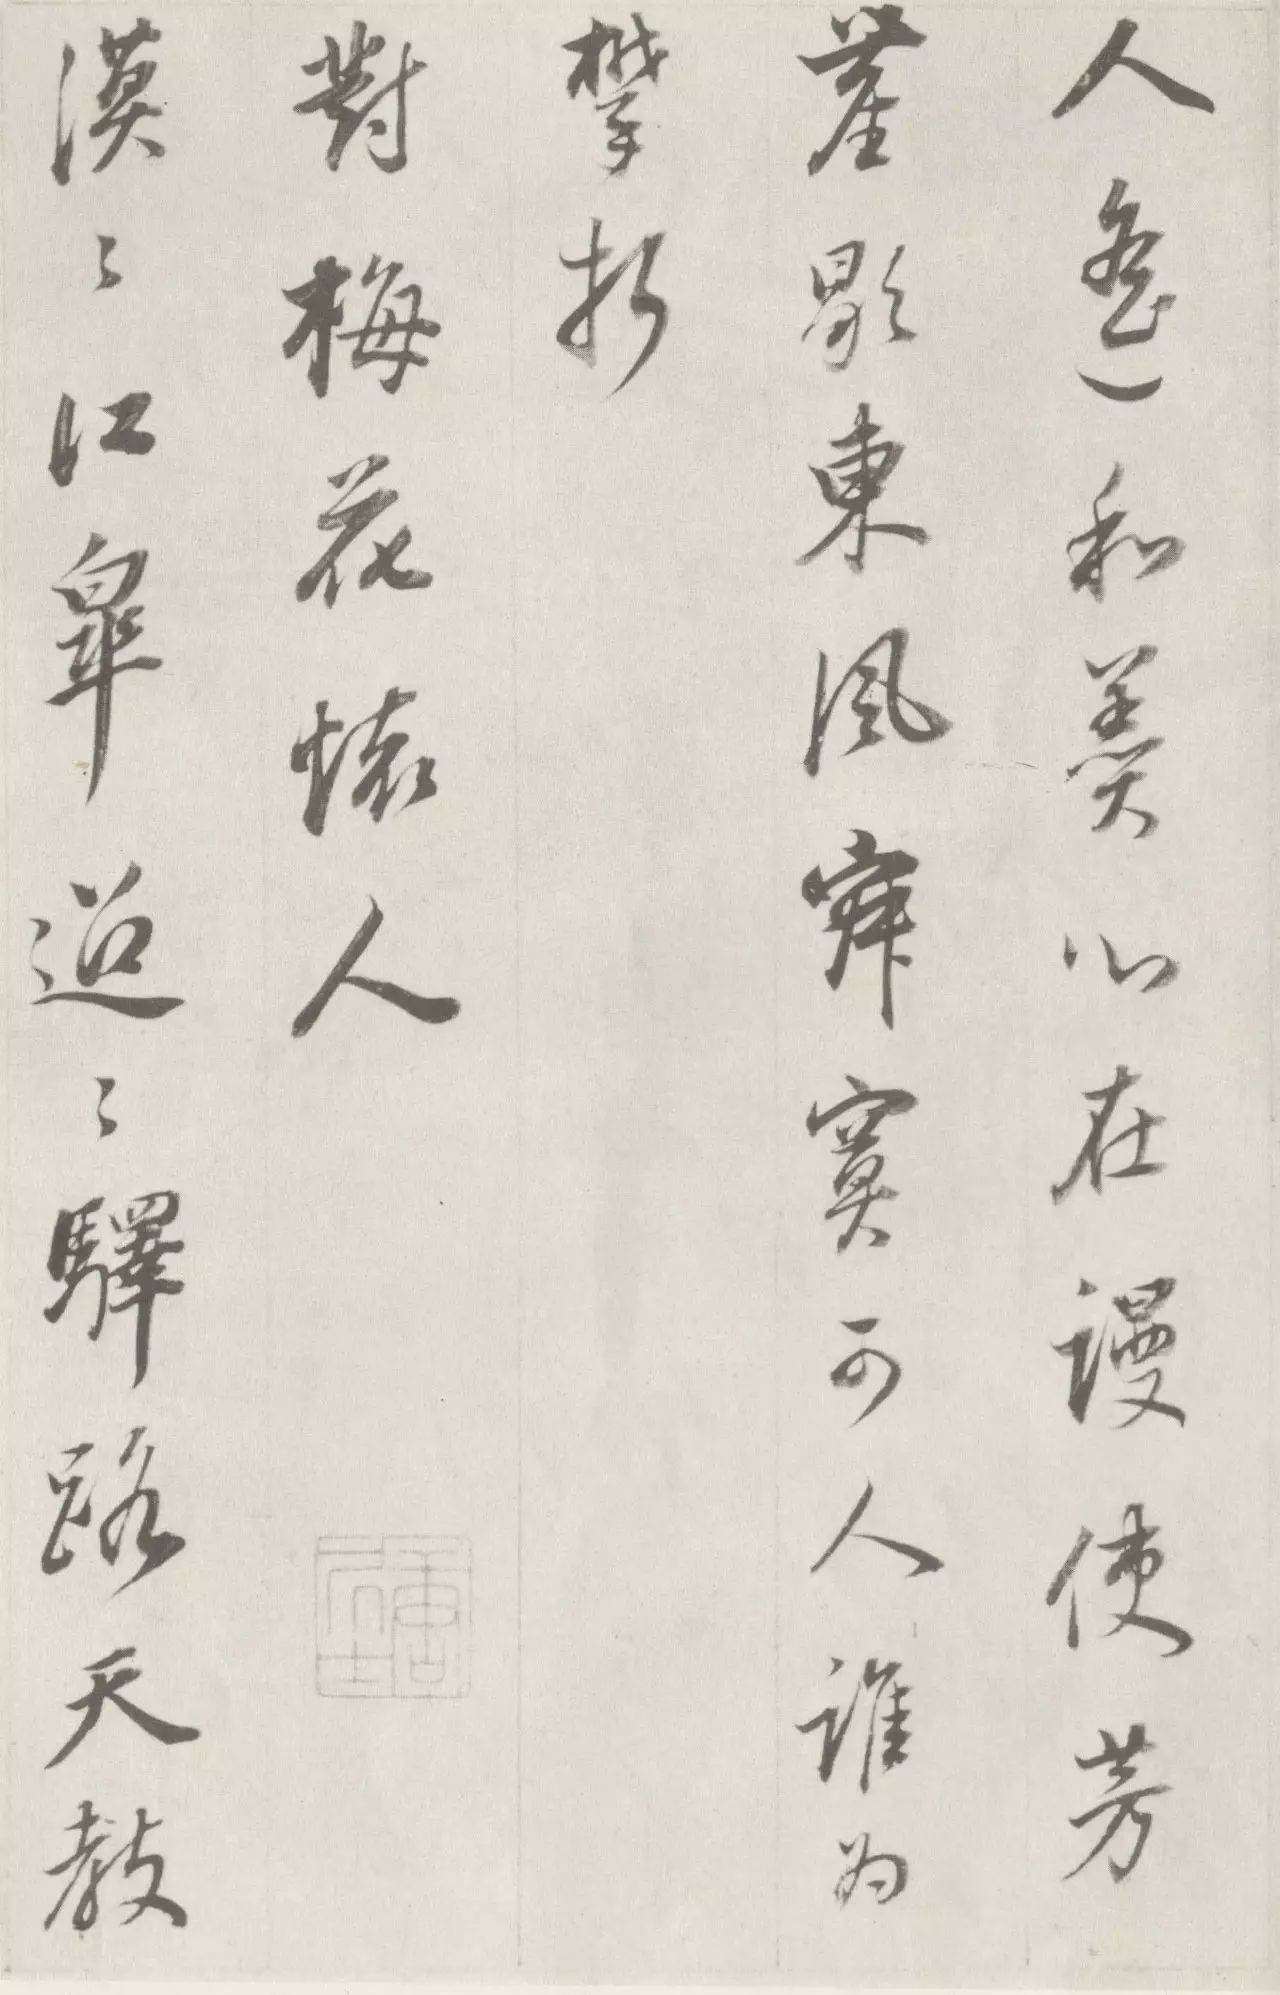 人和羹心在謾使芳
叢歇東風寂寞可人誰為
攀折
對梅花懷人
漠〻江皋迢〻驛路天教